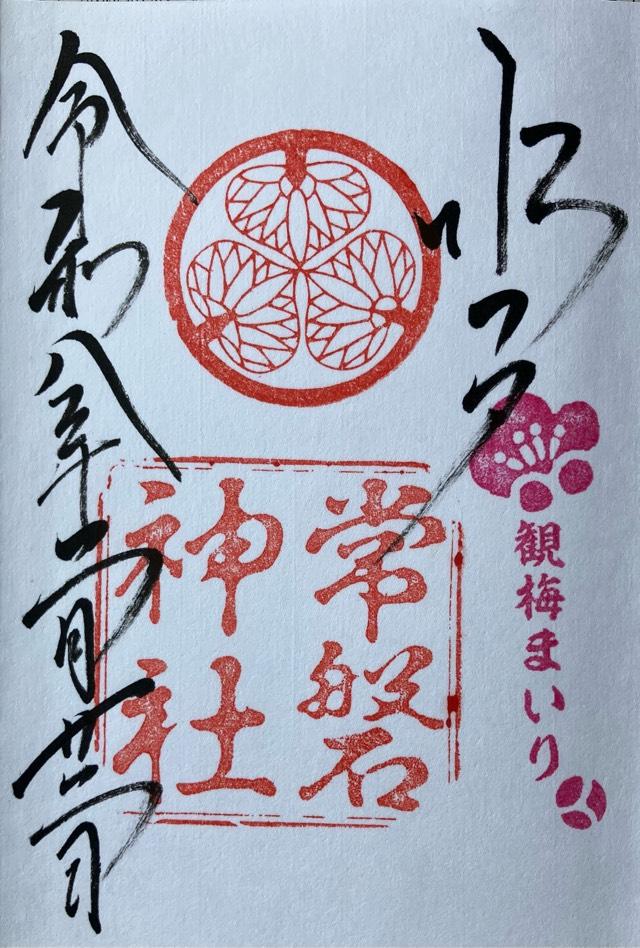 水戸
観梅まいり
常磐
神社
令和八年二月廿二日